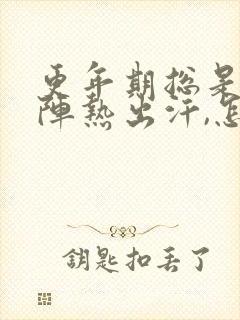 更年期总是
阵热出汗,怎
钥匙扣丢了